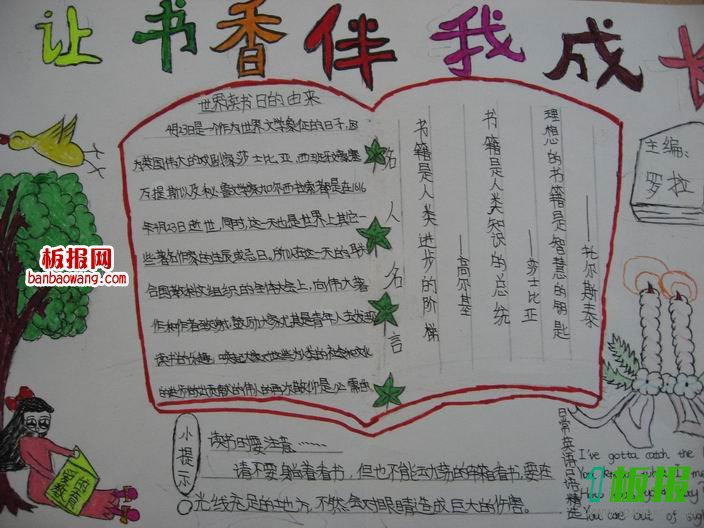 让书香伴我成长
世界读书日的由来
4月23日是一个作为世界文学象征的日子,因
为英国伟大的戏剧家莎士比亚,西班牙
万提斯以及秘鲁文学家加尔西拉索都是在1616
年4月23日逝世,同时,这一天也是世界上其它一
些著名作家的生辰或忌日,所以在这一天的
合国教科文组织的全体大会上,向伟大著
作和作者致敬,鼓励大家尤其是青年人去发现
读书的乐趣,
名人名言
书籍是人类进步的阶梯
——高尔基
书籍是人类知识的总统
——莎士比亚
理想的书籍是智慧的钥匙
——托尔斯泰
主编:
罗拉
板报网
banbaowang.com
爱的教育
小提示
读书时要注意……
请不要躺着看书,但也不能在动荡的车箱看书,要在
光线充足的地方,不然会对眼睛造成巨大的伤害。
日常英语口语精选
I've gotta catch the
You are out of sigh
板报